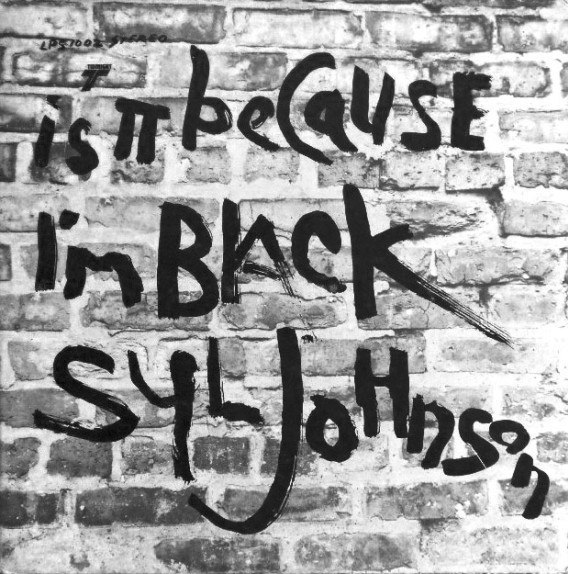 LPS 1002 STEREO
is it because
I'm Black
SYL JoHnson